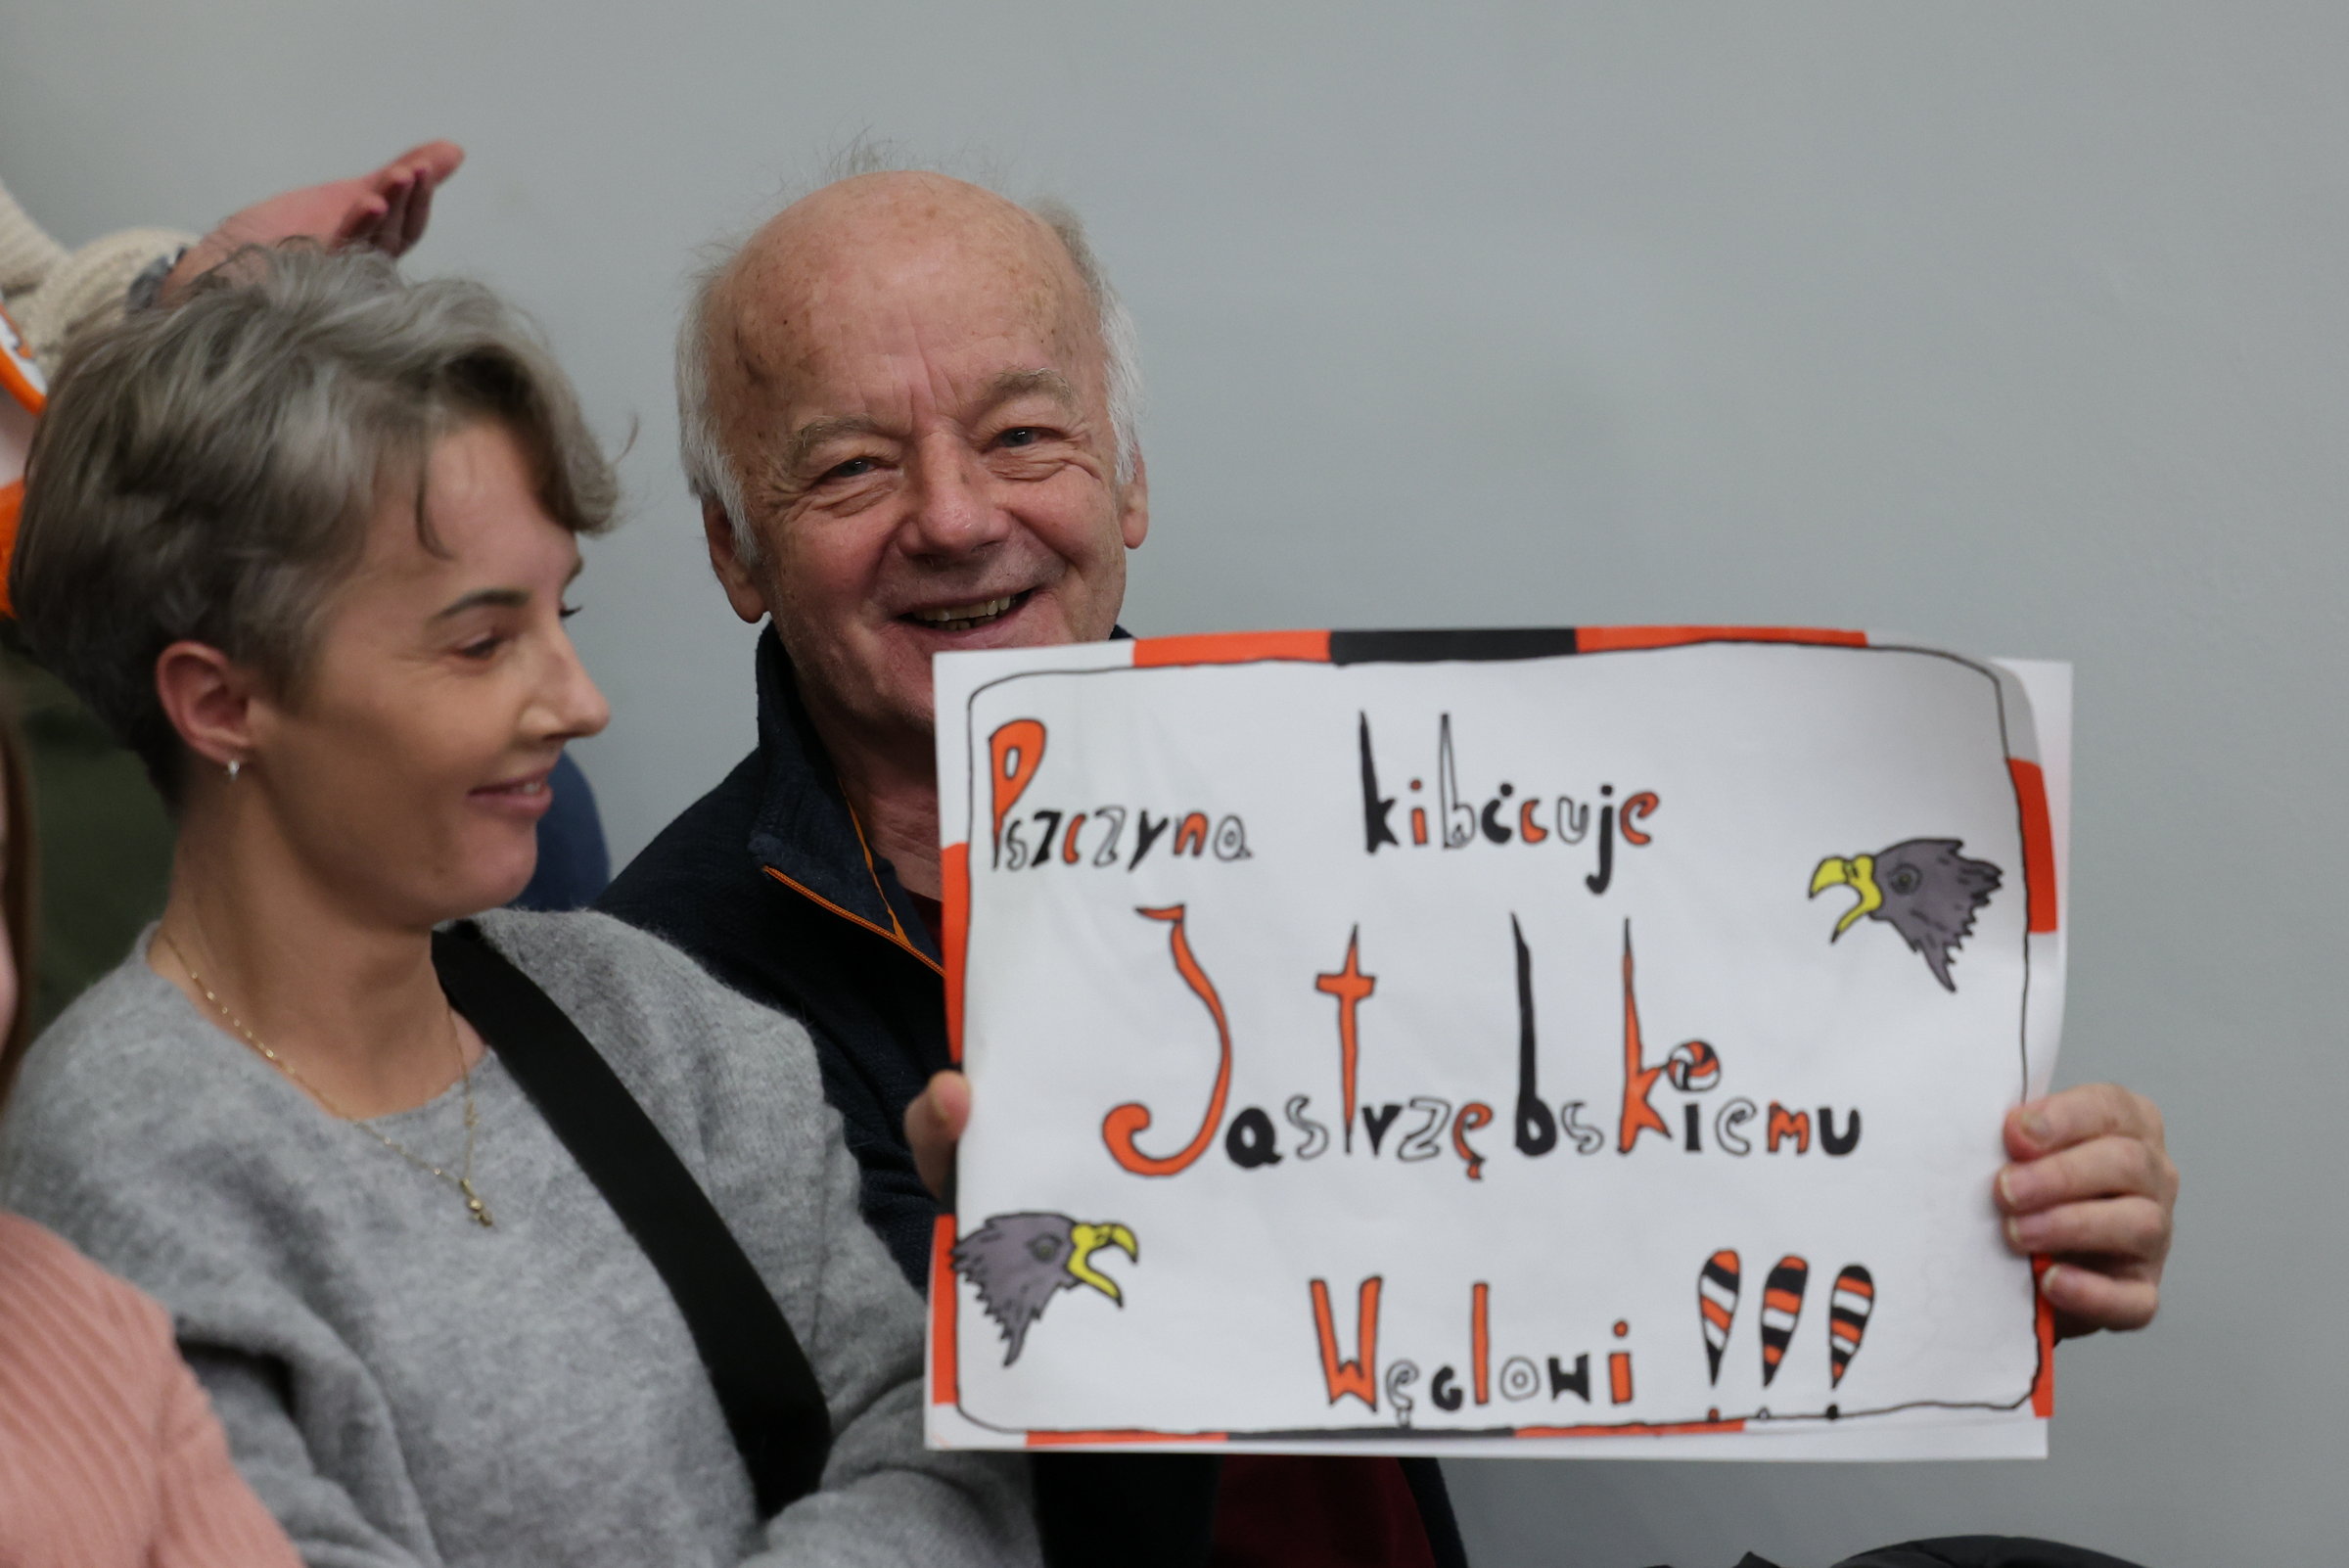 Pszczyna kibicuje
Jastrzębskiemu
Węglowi !!!